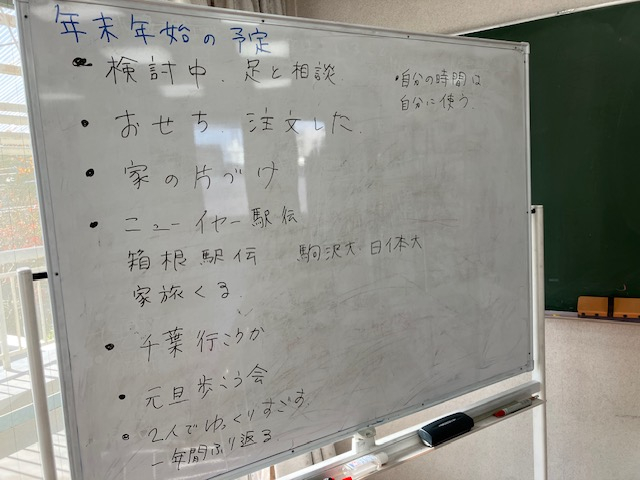 年末年始の予定
・検討中.足と相談
・おせち.注文した.
・家の片づけ
・ニューイヤー駅伝
箱根駅伝 駒沢大 日体大
家族くる.
・千葉行こうか
・元旦歩こう会
・2人でゆっくりすごす
一年間ふり返る
・自分の時間は
自分に使う.